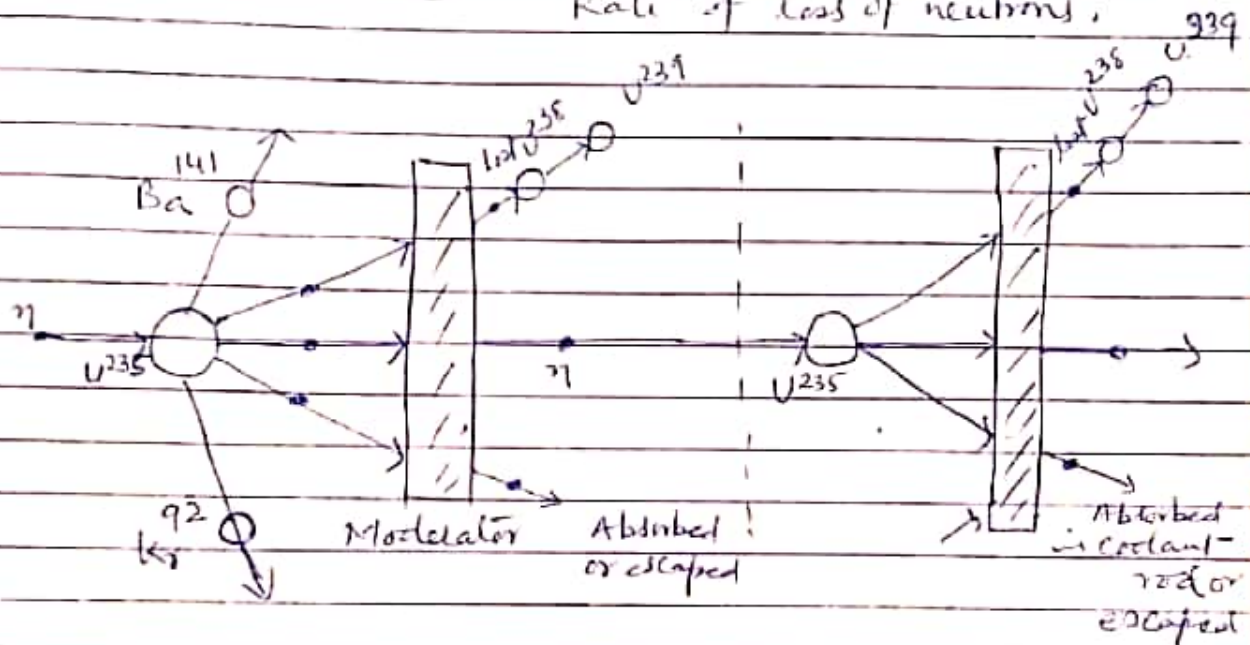 Rate of loss of neutrons.
U 239
lost U238
U239
lost U238
141
Ba
n
U235
n
U235
92
Kr
Moderator
Absorbed
or escaped
Absorbed
in Coolant
rod or
escaped